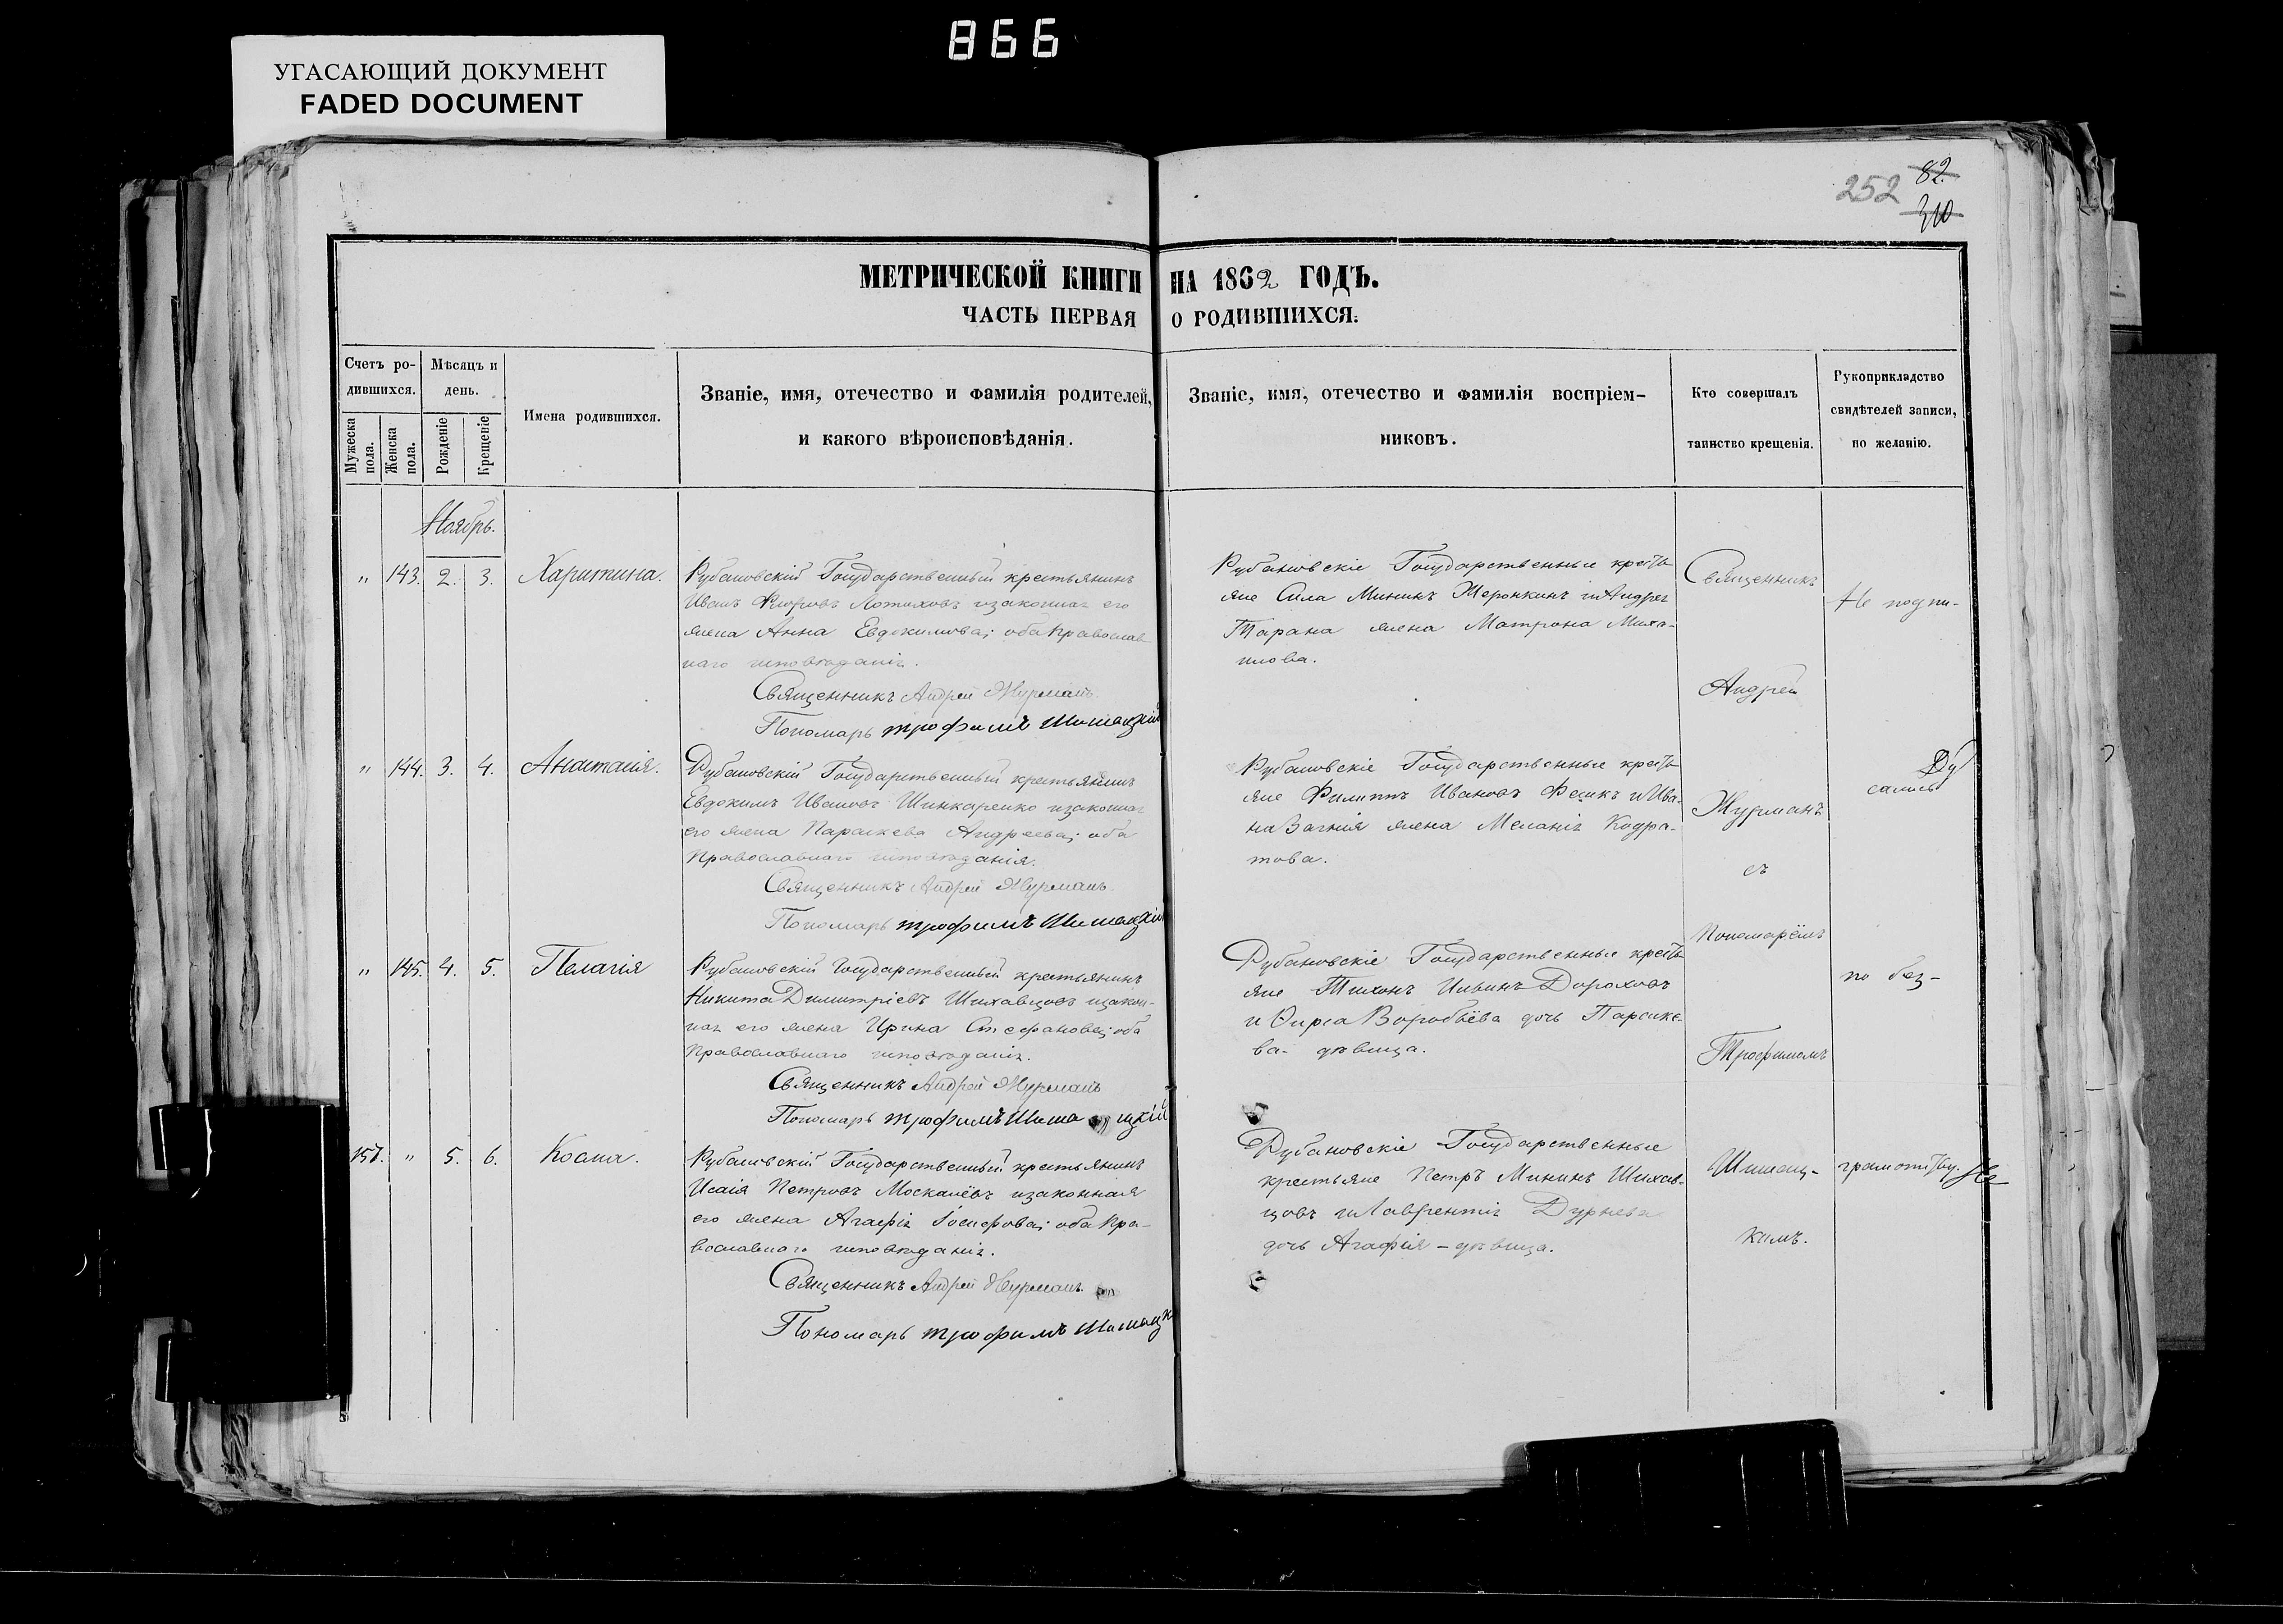 866
УГАСАЮЩИЙ ДОКУМЕНТ
FADED DOCUMENT
252 82.
310
МЕТРИЧЕСКОЙ КНИГИ НА 1862 ГОДЪ.
ЧАСТЬ ПЕРВАЯ О РОДИВШИХСЯ.
Счетъ ро-
дившихся.
Мужеска пола.
Женска пола.
Мѣсяцъ и
день.
Рожденіе
Крещеніе
Имена родившихся.
Званіе, имя, отечество и фамилія родителей,
и какого вѣроисповѣданія.
Званіе, имя, отечество и фамилія воспріем-
никовъ.
Кто совершалъ
таинство крещенія.
Рукоприкладство
свидѣтелей записи,
по желанію.
Ноябрь.
" 143. 2. 3. Харитина.
Рубановскій Государственный крестьянинъ
Иванъ Лотиховъ изаконная его
жена Анна Евдокимова; оба Православ
наго исповѣданія.
Священникъ Андрей Журманъ.
Пономарь трофимъ Шишацкій
Рубановскіе Государственные кресть
яне Сила Мининъ Жеронкинъ иАндрея
Тарана жена Матрона Миха-
илова.
" 144. 3. 4. Анатанія.
Рубановскій Государственный крестьянинъ
Евдокимъ Ивановъ Шинкаренко изаконная
его жена Параскева Андреева; оба
Православнаго исповѣданія.
Священникъ Андрей Журманъ.
Пономарь трофимъ Шишацкій
Рубановскіе Государственные кресть
яне Филиппъ Ивановъ Фесикъ иИва-
на жена Меланія Кодра-
това.
" 145. 4. 5. Пелагія
Рубановскій Государственный крестьянинъ
Никита Димитріевъ Шихавцовъ изакон-
ная его жена Ирина Стефанова; оба
Православнаго исповѣданія.
Священникъ Андрей Журманъ
Пономарь трофимъ Шиша цкій
Рубановскіе Государственные кресть
яне Тихонъ Ильинъ Дороховъ
и Ѳирса Воробьёва дочь Параске-
ва- дѣвица.
157. " 5. 6. Косма.
Рубановскій Государственный крестьянинъ
Исаія Петровъ Москалёвъ изаконная
его жена Агафія Іосифова; оба Пра-
вославнаго исповѣданія.
Священникъ Андрей Журманъ.
Пономарь трофимъ Шишацк
Рубановскіе Государственные
крестьяне Петръ Мининъ Шихав-
цовъ иЛаврентія Дурнева
дочь Агафія - дѣвица.
Священникъ
Андрей
Журманъ
съ
Пономарёмъ
Трофимомъ
Шишац-
кимъ.
Не подпи-
сались
по без-
грамотству.